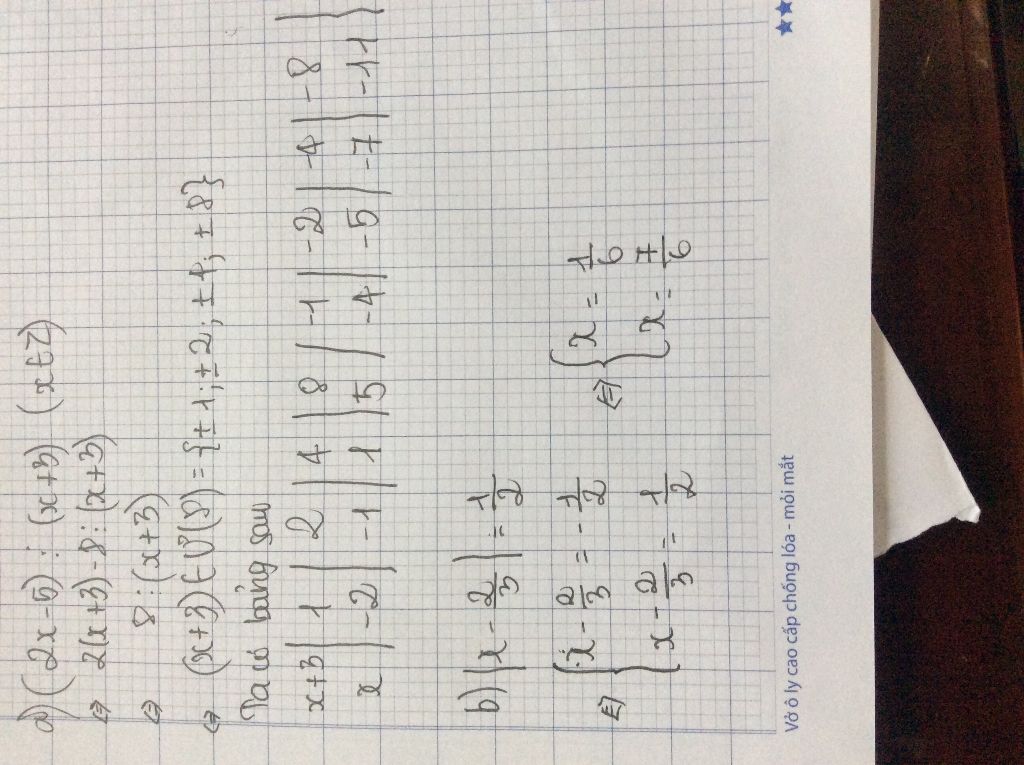 a) (2x-5) ⋮ (x+3) (x∈Z)
⇔ 2(x+3)-8 ⋮ (x+3)
⇔ 8 ⋮ (x+3)
⇔ (x+3)∈Ư(8) = {±1; ±2; ±4; ±8}
Ta có bảng sau
x+3 | 1 | 2 | 4 | 8 | -1 | -2 | -4 | -8 |
x | -2 | -1 | 1 | 5 | -4 | -5 | -7 | -11 |
b) |x - 2/3| = 1/2
⇔ { x - 2/3 = -1/2 ⇔ { x = 1/6
x - 2/3 = 1/2 x = 7/6
Vở ô ly cao cấp chống lóa - mỏi mắt ★★